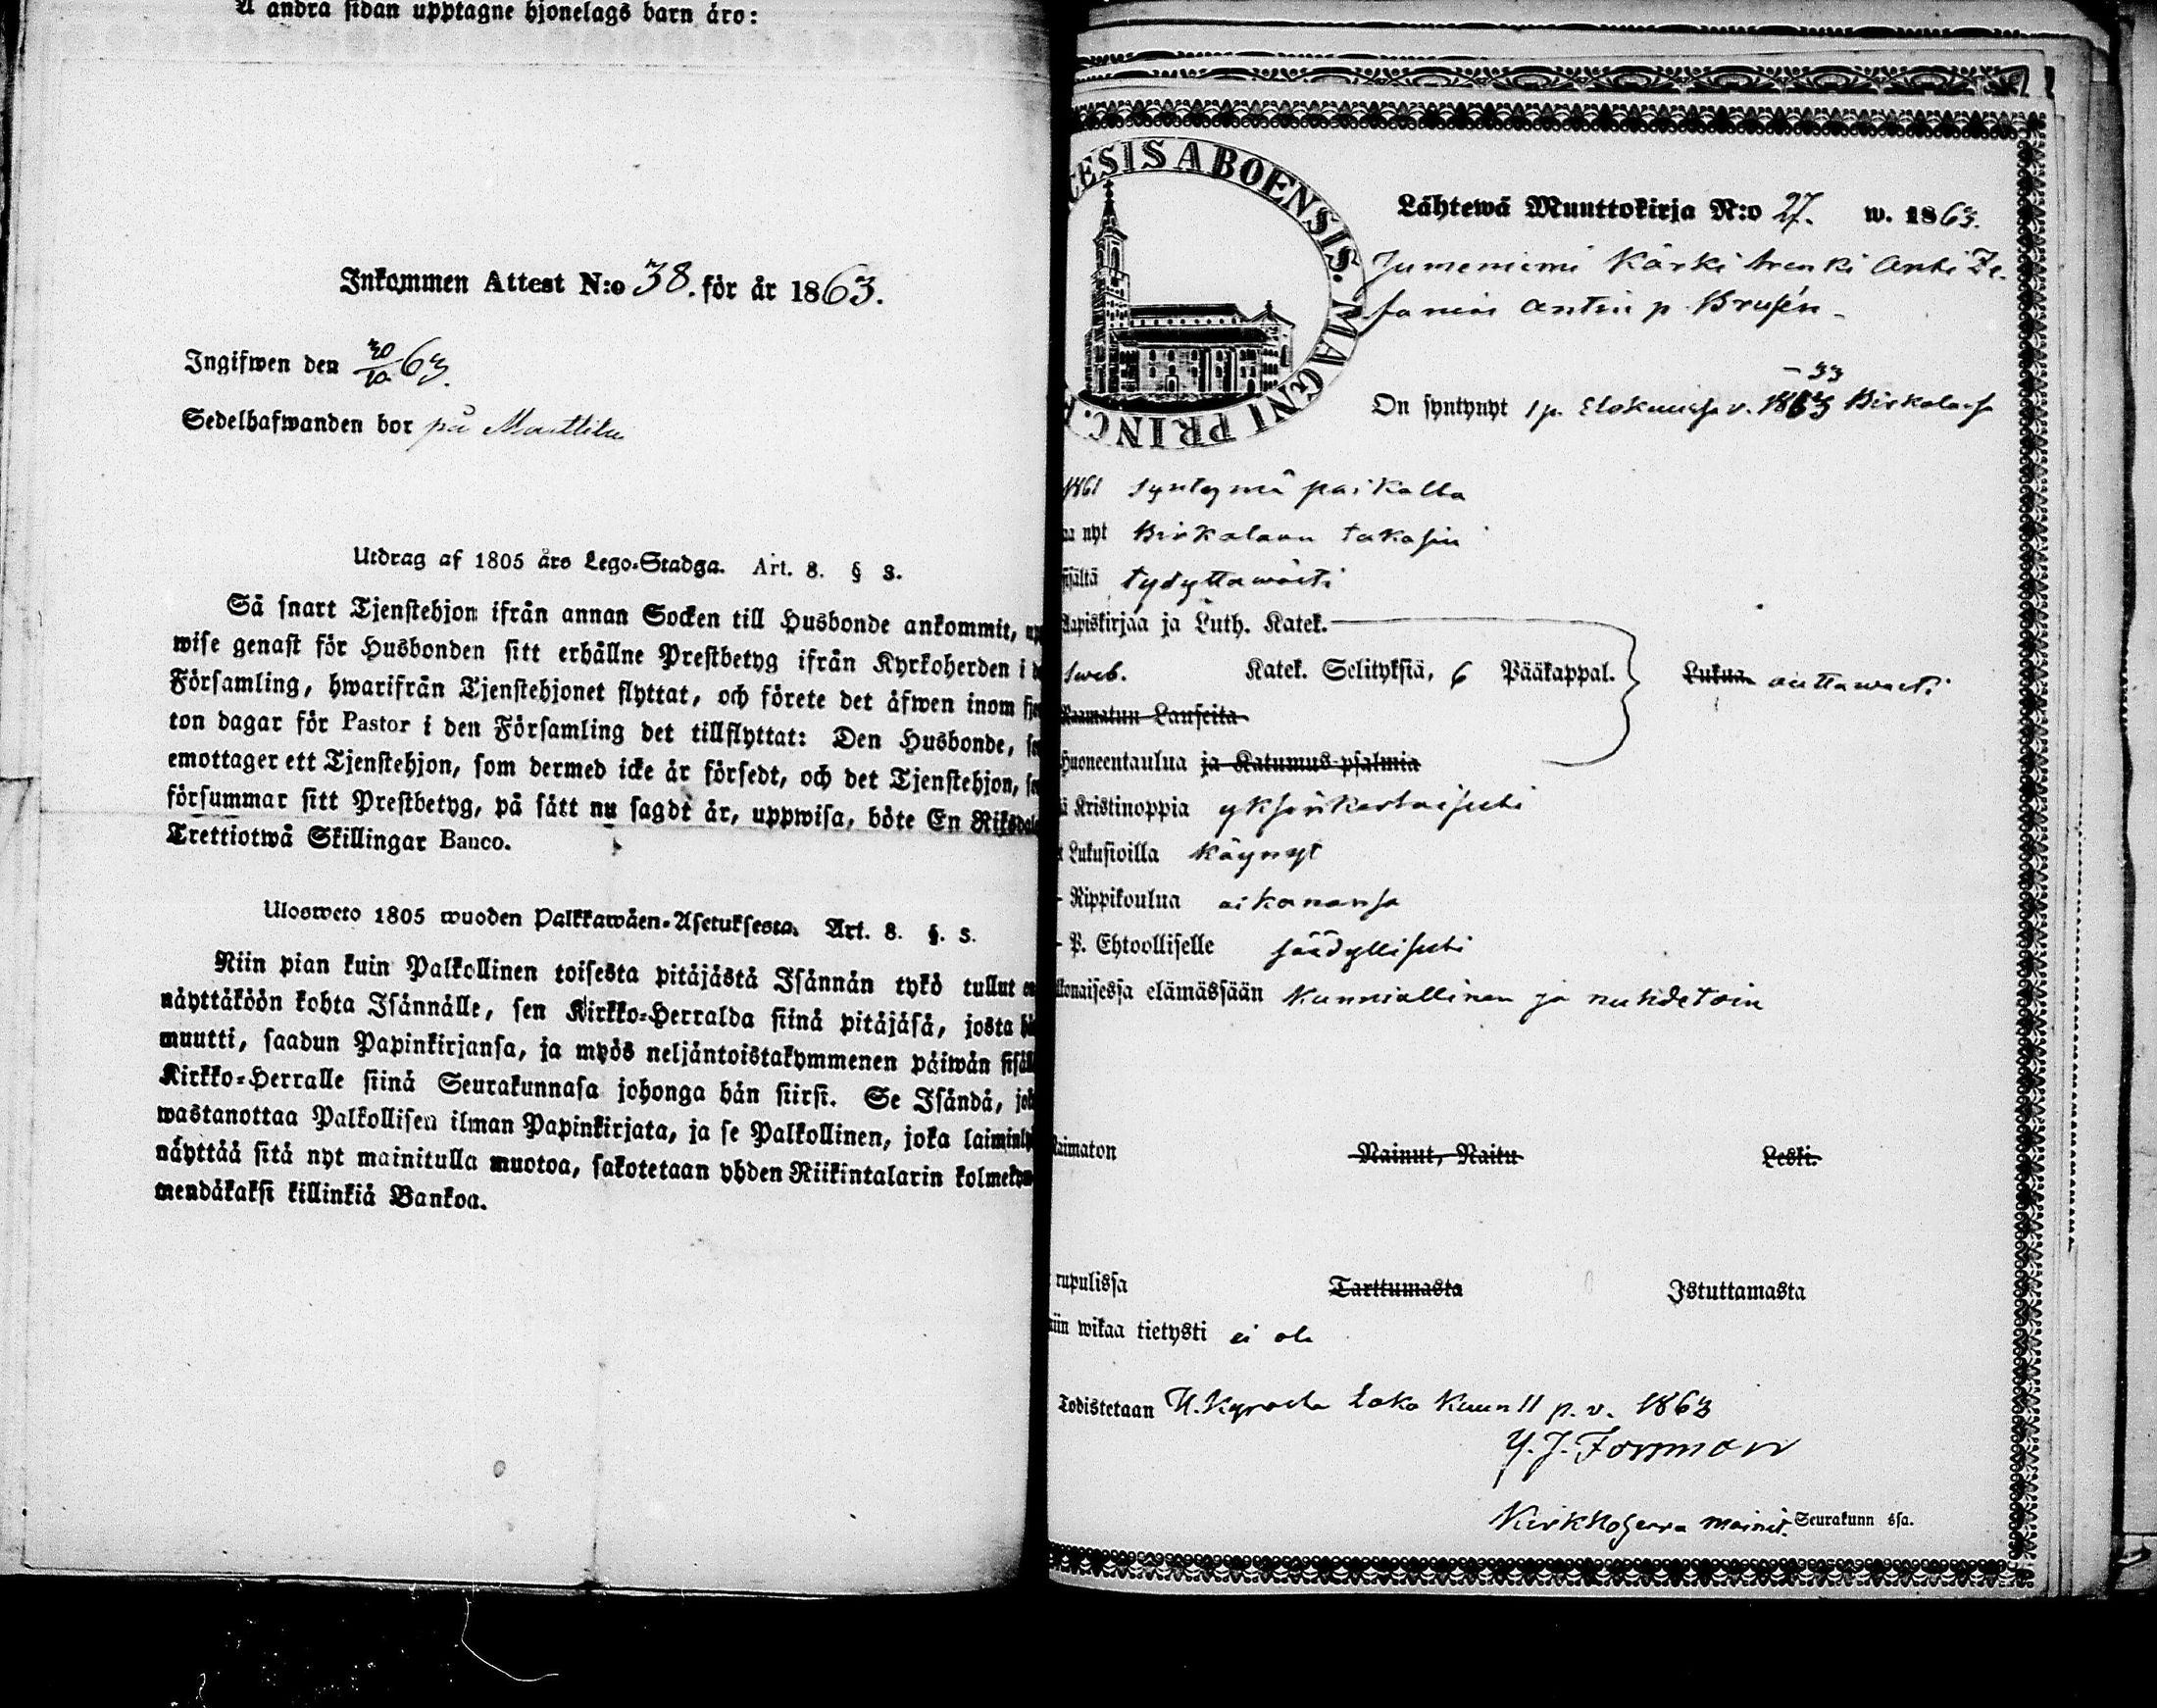 A andra sidan upptagne hjonelags barn äro:
Inkommen Attest N:o 38. för år 1863.
Ingifwen den 30/10 63.
Sedelhafwanden bor på Mattila
Utdrag af 1805 års Lego-Stadga. Art. 8. § 3.
Så snart Tjenstehjon ifrån annan Socken till Husbonde ankommit, upp
wise genast för Husbonden sitt erhållne Prestbetyg ifrån Kyrkoherden i d
Församling, hwarifrån Tjenstehjonet flyttat, och förete det äfwen inom fje
ton dagar för Pastor i den Församling det tillflyttat: Den Husbonde, so
emottager ett Tjenstehjon, som dermed icke är försedt, och det Tjenstehjon, so
försummar sitt Prestbetyg, på sätt nu sagdt är, uppwisa, böte En Riksdale
Trettiotwå Skillingar Banco.
Ulosweto 1805 wuoden Palkkawäen-Asetuksesta. Art. 8. §. 3.
Niin pian kuin Palkollinen toisesta pitäjästä Isännän tykö tullut on
näyttäköön kohta Isännälle, sen Kirkko-Herralda siinä pitäjäsä, josta hä
muutti, saadun Papinkirjansa, ja myös neljäntoistakymmenen päiwän sisäll
Kirkko-Herralle siinä Seurakunnasa johonga hän siirsi. Se Isändä, jok
wastanottaa Palkollisen ilman Papinkirjata, ja se Palkollinen, joka laiminly
näyttää sitä nyt mainitulla muotoa, sakotetaan yhden Riikintalarin kolmekym
mendäkaksi killinkiä Bankoa.
ESIS ABOENSIS. MAGNI PRINC. F
Lähtewä Muuttokirja N:o 27. w. 1863.
Jumeniemi Kärki trenki Anti Ze-
fanias Antin p. Brusén
-33
On syntynyt 1 p. Elokuussa v. 1863 Birkalassa
1861 syntymä paikalta
aa nyt Birkalaan takasin
sisältä tydyttäwästi
Aapiskirjaa ja Luth. Katek.
Sweb. Katek. Selityksiä, 6 Pääkappal. Lukua auttawasti
Raamatun Lauseita
Huoneentaulua ja Katumus-psalmia
ä Kristinoppia yksinkertaisesti
t Lukusioilla käynyt
- Rippikoulua aikanansa
- P. Ehtoolliselle säädyllisesti
lkonaisessa elämässään kunniallinen ja nuhdetoin
Naimaton Nainut, Naitu Leski.
rupulissa Tarttumasta Istuttamasta
iin wikaa tietysti ei ole
Todistetaan H. Kyrösta Loka Kuun 11 p. v. 1863
Y. J. Forsman
Kirkkoherra mainit. Seurakunn ssa.